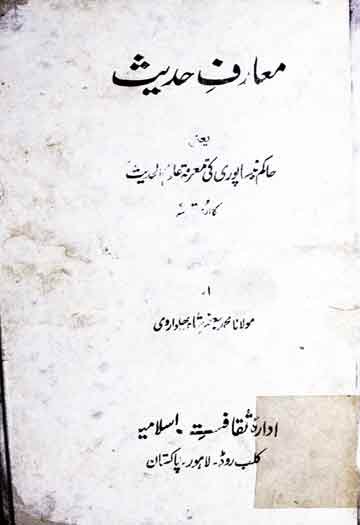 معارفِ حدیث
یعنی
حاکم نیساپوری کی معرفۃ علوم الحدیث
کا اردو ترجمہ
از
مولانا محمد جعفر شاہ پھلواروی
ادارۂ ثقافتِ اسلامیہ
کلب روڈ ۔ لاہور ۔ پاکستان